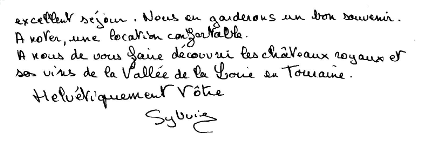 excellent séjour. Nous en garderons un bon souvenir.
A noter, une location confortable.
A nous de vous faire découvrir les châteaux royaux et
ses vins de la Vallée de la Loire en Touraine.
Helvétiquement Vôtre
Sylvie